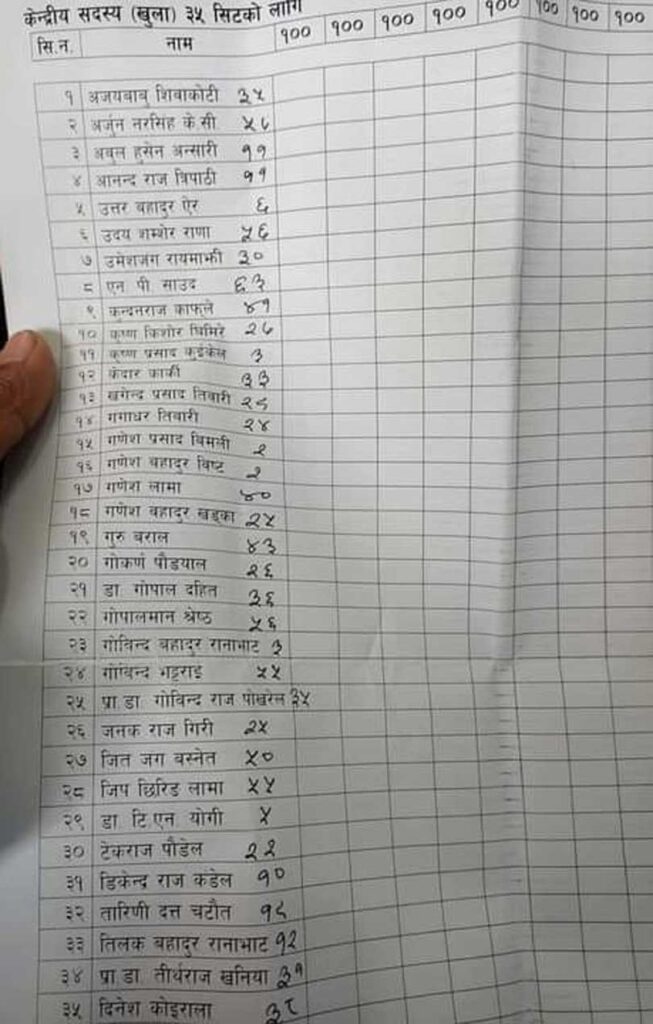 केन्द्रीय सदस्य (खुला) ३५ सिटको लागि
सि.न. नाम १०० १०० १०० १०० १०० १०० १०० १००
१ अजयबाबु शिवाकोटी ३५
२ अर्जुन नरसिंह के.सी. ५८
३ अबुल हुसेन अन्सारी ११
४ आनन्द राज त्रिपाठी ११
५ उत्तर बहादुर ऐर ६
६ उदय शम्शेर राणा ५६
७ उमेशजंग रायमाझी ३०
८ एन पी साउद ६३
९ कुन्दनराज काफ्ले ४१
१० कृष्ण किशोर घिमिरे २८
११ कृष्ण प्रसाद कुईकेल ३
१२ केदार कार्की ३३
१३ खगेन्द्र प्रसाद तिवारी
१४ गंगाधर तिवारी २४
१५ गणेश प्रसाद बिमली २
१६ गणेश बहादुर विष्ट २
१७ गणेश लामा ४०
१८ गणेश बहादुर खड्का २५
१९ गुरु बराल ४३
२० गोकर्ण पौडयाल २६
२१ डा. गोपाल दहित ३६
२२ गोपालमान श्रेष्ठ ५६
२३ गोविन्द बहादुर रानाभाट ३
२४ गोविन्द भट्टराई ५५
२५ प्रा.डा. गोविन्द राज पोखरेल ३५
२६ जनक राज गिरी २५
२७ जित जंग बस्नेत ५०
२८ जिप छिरिङ लामा ५५
२९ डा. टि.एन. योगी ५
३० टेकराज पौडेल २२
३१ डिकेन्द्र राज कंडेल १०
३२ तारिणी दत्त चटौत
३३ तिलक बहादुर रानाभाट १२
३४ प्रा.डा. तीर्थराज खनिया ३१
३५ दिनेश कोइराला